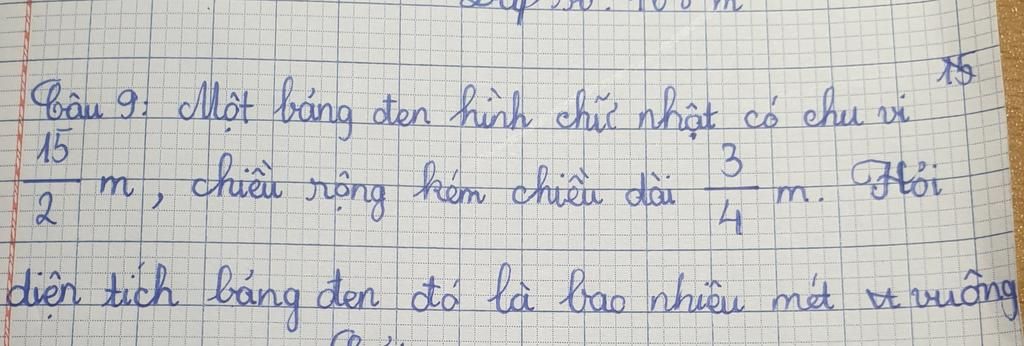 Câu 9: Một bảng đen hình chữ nhật có chu vi
15/2 m, chiều rộng kém chiều dài 3/4 m. Hỏi
diện tích bảng đen đó là bao nhiêu mét vuông